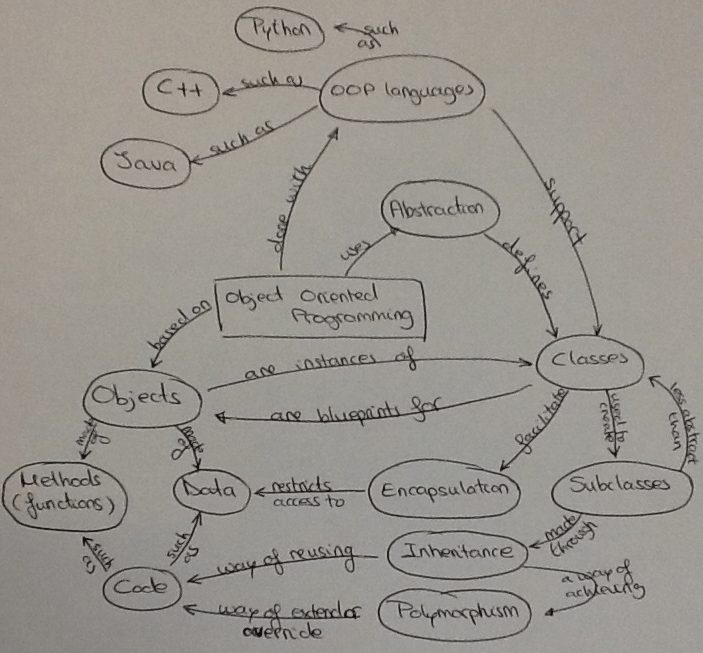 Python
such
as
C++
such as
OOP languages
Java
such as
done with
Abstraction
uses
support
defines
Object Oriented
Programming
based on
are instances of
Classes
Objects
are blueprints for
made
of
made
of
facilitate
used to
create
less abstract
than
Methods
(functions)
Data
restricts
access to
Encapsulation
Subclasses
such
as
such
as
way of reusing
Inheritance
made
through
Code
a way of
achieving
way of extend or
override
Polymorphism